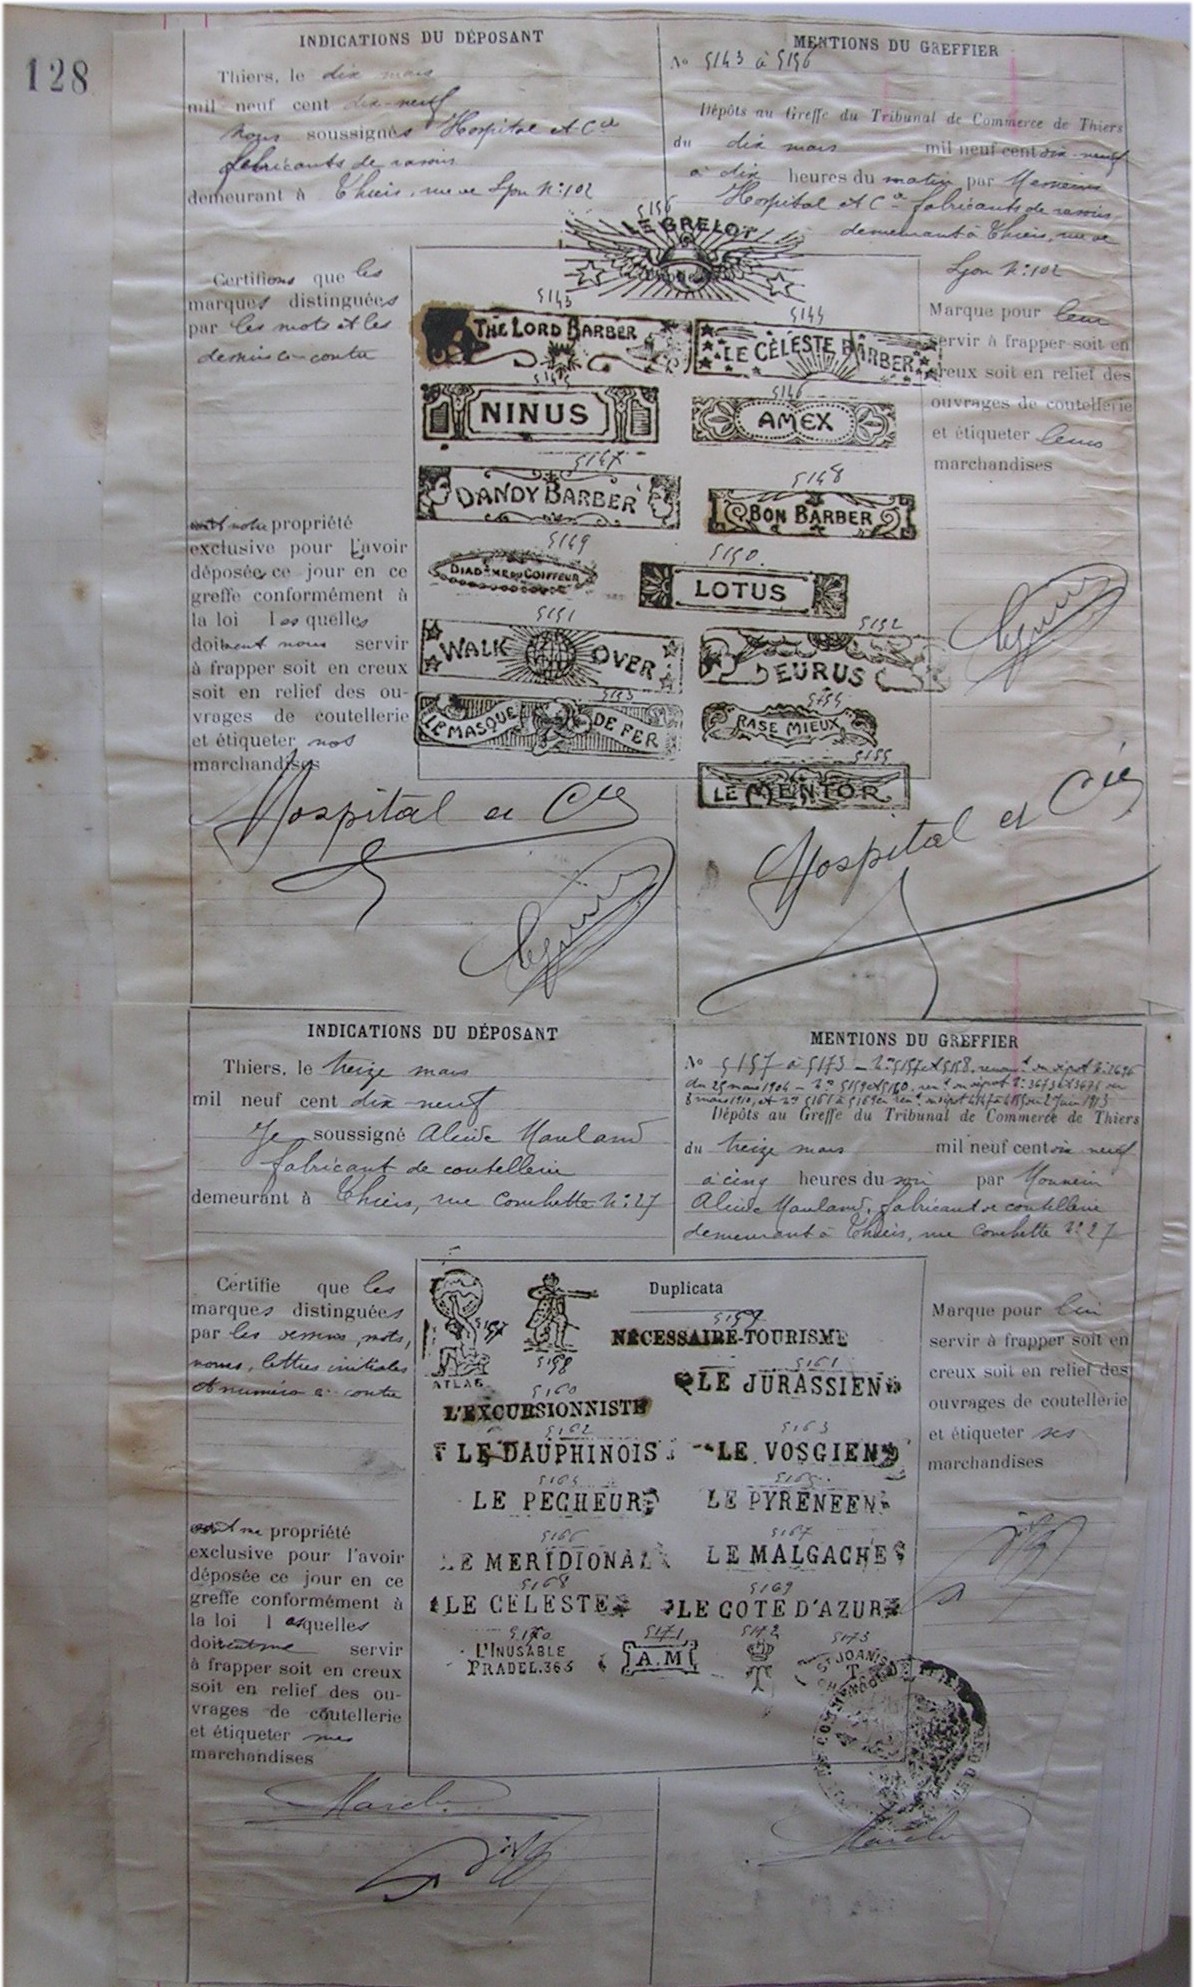 128
INDICATIONS DU DÉPOSANT
Thiers, le dix mars
mil neuf cent dix-neuf
Nous soussignés Hospital et Cie
fabricants de rasoirs
demeurant à Thiers, rue de Lyon N: 102
MENTIONS DU GREFFIER
No 5143 à 5156
Dépôts au Greffe du Tribunal de Commerce de Thiers
du dix mars mil neuf cent dix-neuf
à dix heures du matin par Messieurs
Hospital et Cie fabricants de rasoirs,
demeurant à Thiers, rue de
Lyon N: 102
Certifions que les
marques distinguées
par les mots et les
dessins ci-contre
sont notre propriété
exclusive pour l'avoir
déposée ce jour en ce
greffe conformément à
la loi les quelles
doivent nous servir
à frapper soit en creux
soit en relief des ou-
vrages de coutellerie
et étiqueter nos
marchandises
5156
LE GRELOT
5143
THE LORD BARBER
5144
LE CÉLESTE BARBER
5145
NINUS
5146
AMEX
5147
DANDY BARBER
5148
BON BARBER
5149
DIADÈME DU COIFFEUR
5150.
LOTUS
5151
WALK OVER
5152
EURUS
5153
LE MASQUE DE FER
5154
RASE MIEUX
5155
LE MENTOR
Marque pour leur
servir à frapper soit en
creux soit en relief des
ouvrages de coutellerie
et étiqueter leurs
marchandises
Hospital et Cie
Hospital et Cie
INDICATIONS DU DÉPOSANT
Thiers, le treize mars
mil neuf cent dix-neuf
Je soussigné
fabricant de coutellerie
demeurant à Thiers, rue Conchette N: 27
MENTIONS DU GREFFIER
No 5157 à 5173
Dépôts au Greffe du Tribunal de Commerce de Thiers
du treize mars mil neuf cent dix neuf
à cinq heures du soir par Monsieur
fabricant de coutellerie
demeurant à Thiers, rue Conchette No 27
Certifie que les
marques distinguées
par les dessins, mots,
noms, lettres initiales
et numéro ci-contre
sont ma propriété
exclusive pour l'avoir
déposée ce jour en ce
greffe conformément à
la loi lesquelles
doivent me servir
à frapper soit en creux
soit en relief des ou-
vrages de coutellerie
et étiqueter mes
marchandises
Duplicata
5157
ATLAS
5158
5159
NÉCESSAIRE-TOURISME
5160
L'EXCURSIONNISTE
5161
LE JURASSIEN
5162
LE DAUPHINOIS
5163
LE VOSGIEN
5164
LE PECHEUR
5165
LE PYRENEEN
5166
LE MERIDIONAL
5167
LE MALGACHE
5168
LE CELESTE
5169
LE COTE D'AZUR
5170
L'INUSABLE
PRADEL.365
5171
A.M
5172
T
5173
ST JOANIS
T.
Marque pour lui
servir à frapper soit en
creux soit en relief des
ouvrages de coutellerie
et étiqueter ses
marchandises